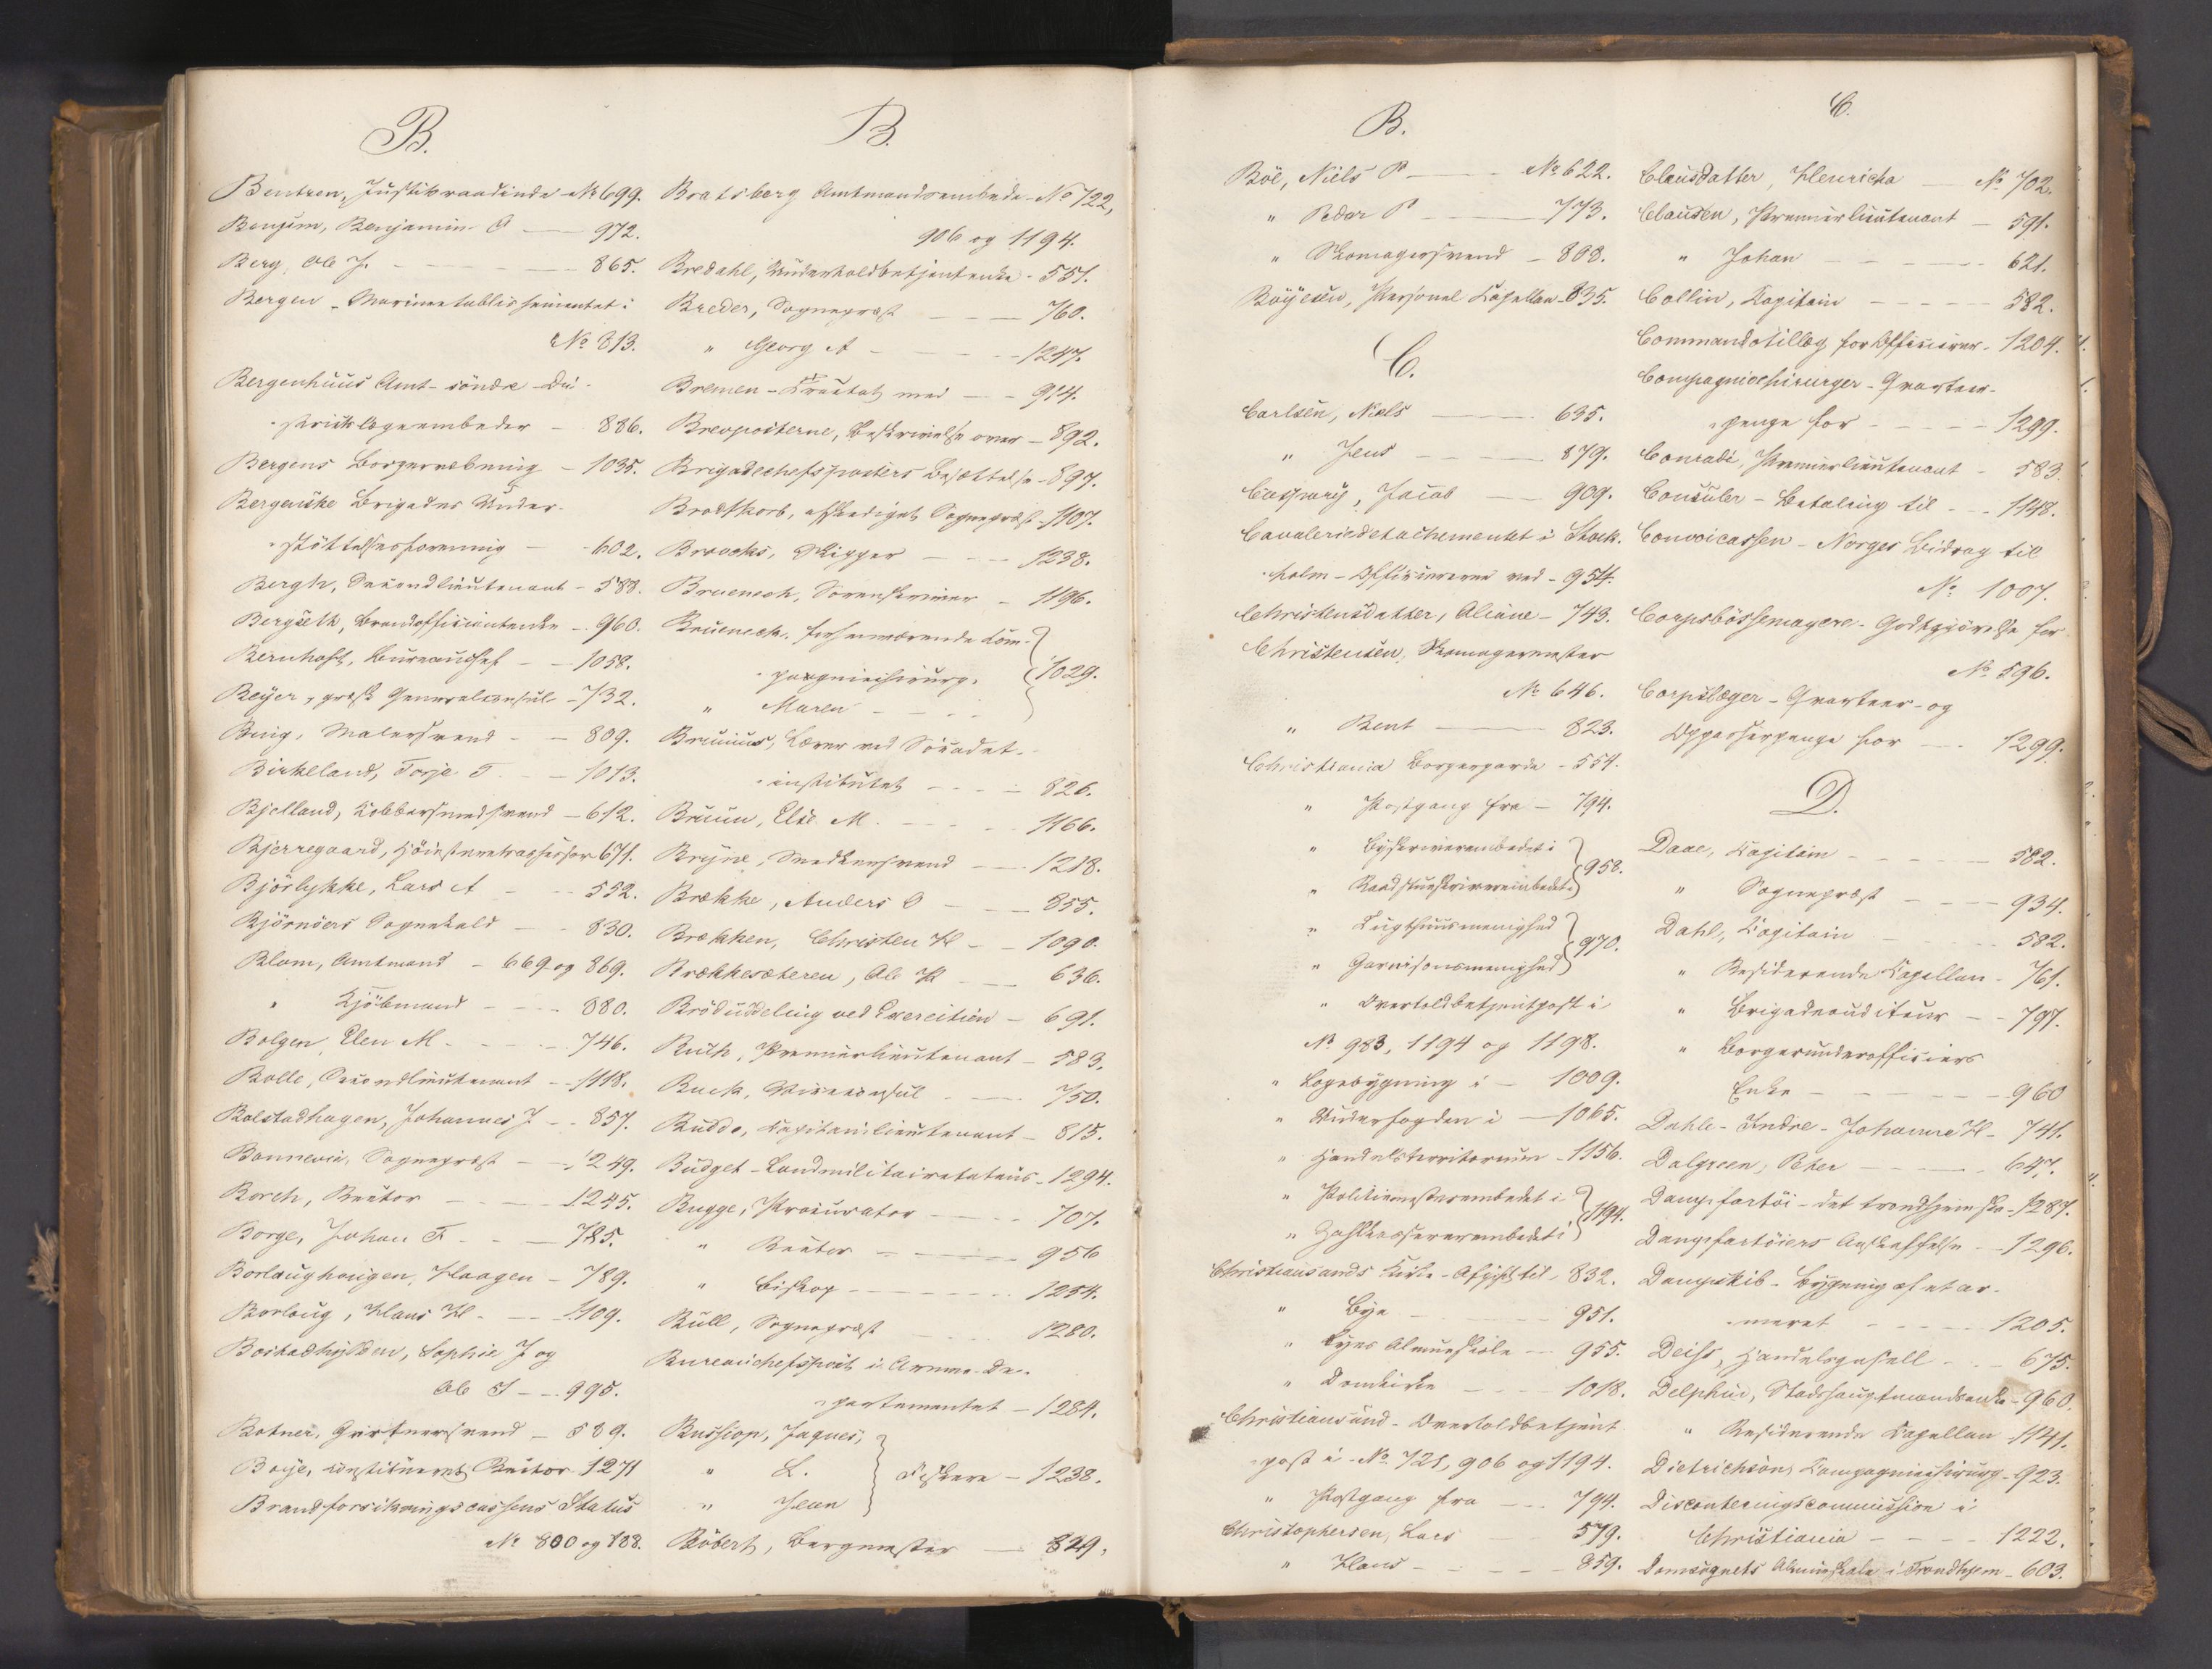 B.
Bentzen, Justitsraadinde - No 699.
Bengsen, Benjamin O — 972.
Berg, Ole J. - - - 865.
Bergen - Marineetablissementet i
No 813.
Bergenhuus Amt - söndre - Di-
strictslægeembeder - 886.
Bergens Borgervæbning - 1035.
Bergenske Brigades Under-
støttelsesforening - 602.
Bergh, Secondlieutenant - 588.
Bergseth, - 960.
Bernhoft, Bureauchef - - 1058.
Beyer, græsk Generalconsul - 732.
Bing, Malersvend - - 809.
Birkeland, Torje T. - - 1013.
Bjelland, Kobbersmedsvend - 612.
Bjerregaard, Höiesteretsassessor 671.
Björlykke, Lars A - - 552.
Björnöers Sognekald - - 830.
Blom, Amtmand - 669 og 869.
" Kjöbmand - - - 880.
Bolgen, Elen M - - - 746.
Bolle, Secondlieutenant - - 1118.
Bolstadhagen, Johannes J - - 857.
Bonnevie, Sognepræst - - 1249.
Borch, Rector - - - 1245.
Borge, Johan F - - - 785.
Borlaughougen, Haagen - 789.
Borloug, Klaus H - - - 1109.
Bostadhylden, Sophie J og
Ole T - - 995.
Botner, Garversvend - 589.
Boye, constitueret Rector 1271
Brandforsikringscassens Status
No 800 og 888.
B.
Bratsberg Amtmandsembede - No 722,
906 og 1194.
Bredahl, Underholdbetjentenke - 551.
Breder, Sognepræst — 760.
" Georg A - - - 1247.
Bremen - Tractat med - - 914.
Brevposterne, Beskrivelse over - 892.
Brigadechefsposters Besættelse - 897.
Brodtkorb, afskediget Sognepræst - 1107.
Broochs, Skipper - - - 1238.
Bruenech, Sorenskriver - 1196.
Bruenech, forhenværende Com-
pagniechirurg, 1029.
" Maren - - -
Brunius, Lærer ved Söcadet-
institutet - - - 826.
Bruun, Else M. - - - 1166.
Bryne, Snedkersvend — 1218.
Brække, Anders O - - - 855.
Brækken, Christen H - - 1090.
Brækkesæteren, Ole H — 636.
Bröduddeling ved Exercitien - 691.
Buch, Premierlieutenant - 583.
Buck, Viceconsul - — 750.
Budde, Capitainlieutenant - 815.
Budget - Landmilitairetatens - 1294.
Bugge, Procurator — - - 707.
" Rector - — 956
" Biskop - - - - 1254.
Bull, Sognepræst - - - 1280.
Bureauchefspost i Armee-De-
partementet - 1284.
Bussiop, Jaques,
" L. Fiskere - 1238.
" Jean
Böbert, Bergmester — 829.
B.
Böe, Niels P — - - No 622.
" Peder P - — 773.
" Skomagersvend - 808.
Böyesen, Personel Capellan - 835.
C.
Carlsen, Niels — 635.
" Jens - - — 879.
Caspary, Jacob — 909.
Cavaleriedetachementet i Stock-
holm - Officererne ved - 954.
Christensdatter, Oliane - 743.
Christensen, Skomagermester
No 646.
" Bent — 823.
Christiania Borgergarde - 554.
" Postgang fra - 794.
" Byskriverembedet i
" Raadstueskriverembedet i 958.
" Tugthuusmenighed
" Garnisonsmenighed 970.
" Overtoldbetjentpost i
No 983, 1194 og 1198.
" Logebygning i - 1009.
" Underfogden i — 1065.
" Handelsterritorium - 1156.
" Politiemesterembedet i
" Zahlkassererembedet i 1194.
Christiansands Kirke - Afgift til - 832.
" Bye - - 951.
" Byes Almueskole - 955.
" Domkirke - - - 1018.
Christiansund - Overtoldbetjent
post i - No 721, 906 og 1194.
" Postgang fra - - - 794.
Christophersen, Lars — 579.
" Hans - - - 859.
C.
Clausdatter, Henricha — No 702.
Clausen, Premierlieutenant - 591.
" Johan - - - - 621.
Collin, Capitain - - - - 582.
Commandotillæg for Officierer - 1204.
Compagniechirurger - Qvarteer-
penge for - - - - 1299.
Conradi, Premierlieutenant - 583.
Consuler - Betaling til - - 1148.
Convoicassen - Norges Bidrag til
No 1007.
Corpsbössemagere - Godtgjörelse for
No 596.
Corpslæger - Qvarteer- og
Oppasserpenge for - - 1299.
D.
Daae, Capitain - - - — 582.
" Sognepræst - - - 934.
Dahl, Capitain - - - 582.
" Residerende Capellan - 761.
" Brigadeauditeur - - 797.
" Borgerunderofficiers
Enke - - - - 960
Dahle - Indre - Johanne H - 741.
Dalgreen, Peter - - - 647.
Dampfartöi - det trondhjemske - 1287.
Dampfartöiers Anskaffelse - - 1296.
Dampskib - Bygning af et ar-
meret - - - - 1205.
Deiss, Handelsgesell - - - 675.
Delphin, Stadshauptmandsenke - 960.
" Residerende Capellan - 1141.
Dietrichson, Compagniechirurg - 923.
Disconteringscommission i
Christiania - - - 1222.
Domsognets Almueskole i Trondhjem - 603.